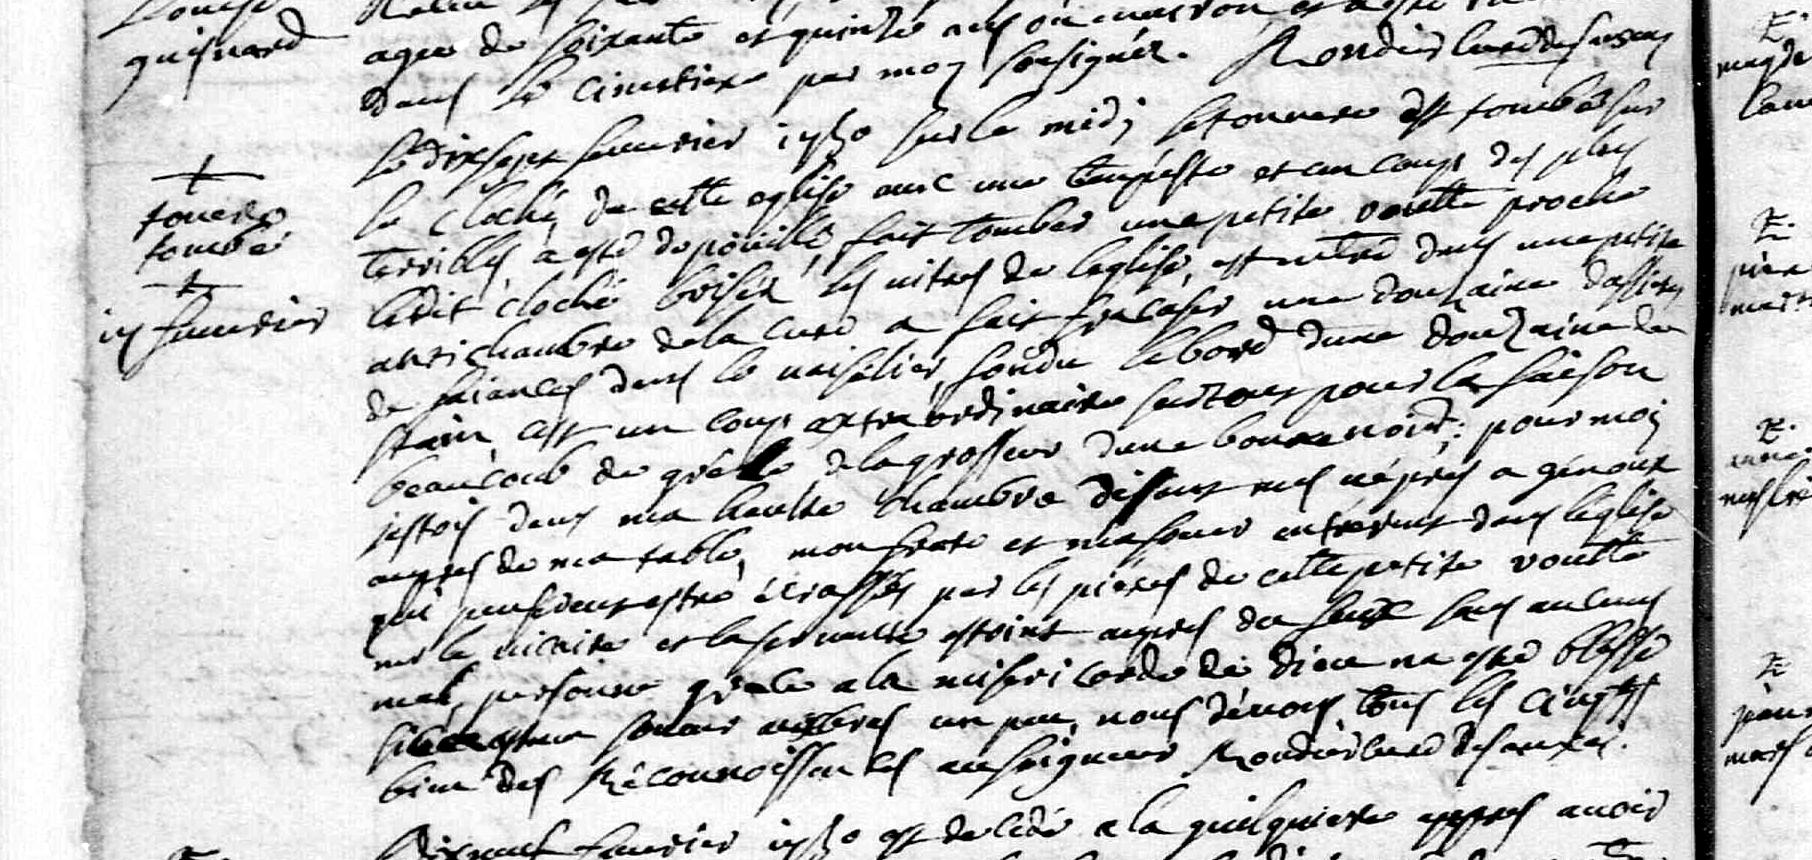 Louise
guisnard
agee de soixante et quinze ans ou environ et a esté
dans le cimetiere par moy soussigné. Rondier curé des
+
tonere
tombé
+
17 janvier
le dixsept janvier 1750 sur le midj le tonnere est tombé sur
le cloché, de cette eglise avec une tempeste et un coup des plus
terribles, a esté depouillé, fait tomber une petite voutte proche
ledit cloché brisér les vitres de leglise, est entré dans une petite
antichambre de la cure a fait fracaser une douzaine dassietes
de faiances dans le vaiselier, fondu le bord dune douzaine de
stain cest un coup extraordinaire surtout pour la saison
beaucoub de gréle de la grosseur dune bonne noix; pour moj
jestois dans ma haulte chambre disant mes vépres a génoux
aupres de ma table, mon frere et ma soeur entrerent dans leglise
qui penserent estre écrassés par les pieres de cette petite voutte
mr le vicaire et la servante estoint aupres du feux sans aucuns
mal, personne grace a la misericorde de dieu na esté blessé
un peu, nous dévons tous les cinq
bien des réconnoissances au seigneur Rondier curé des
Dixneuf janvier 1750 est décédé a la guilquiere appres avoir